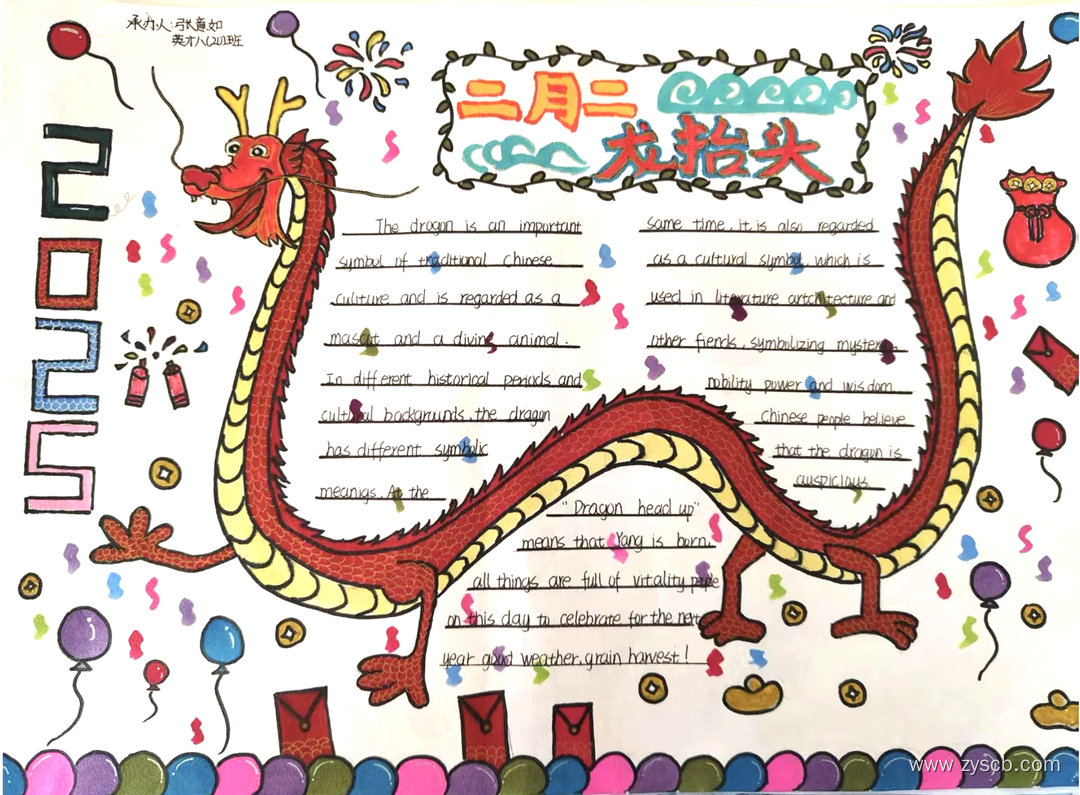 承办人:张意如
英才八(20)班
二月二
龙抬头
2025
The dragon is an important
symbol of traditional chinese
culiture and is regarded as a
mascot and a divine animal.
In different historical periods and
cultural backgrounds, the dragon
has different symbolic
meanigs. At the
same time, it is also regarded
as a cultural symbol, which is
used in literature artchitecture and
other fiends, symbolizing mystery,
nobility power and wisdom
Chinese people believe
that the dragon is
auspicious.
"Dragon head up"
means that Yang is born,
all things are full of vitality, people
on this day to celebrate for the next
year good weather, grain harvest!
www.zyscb.com